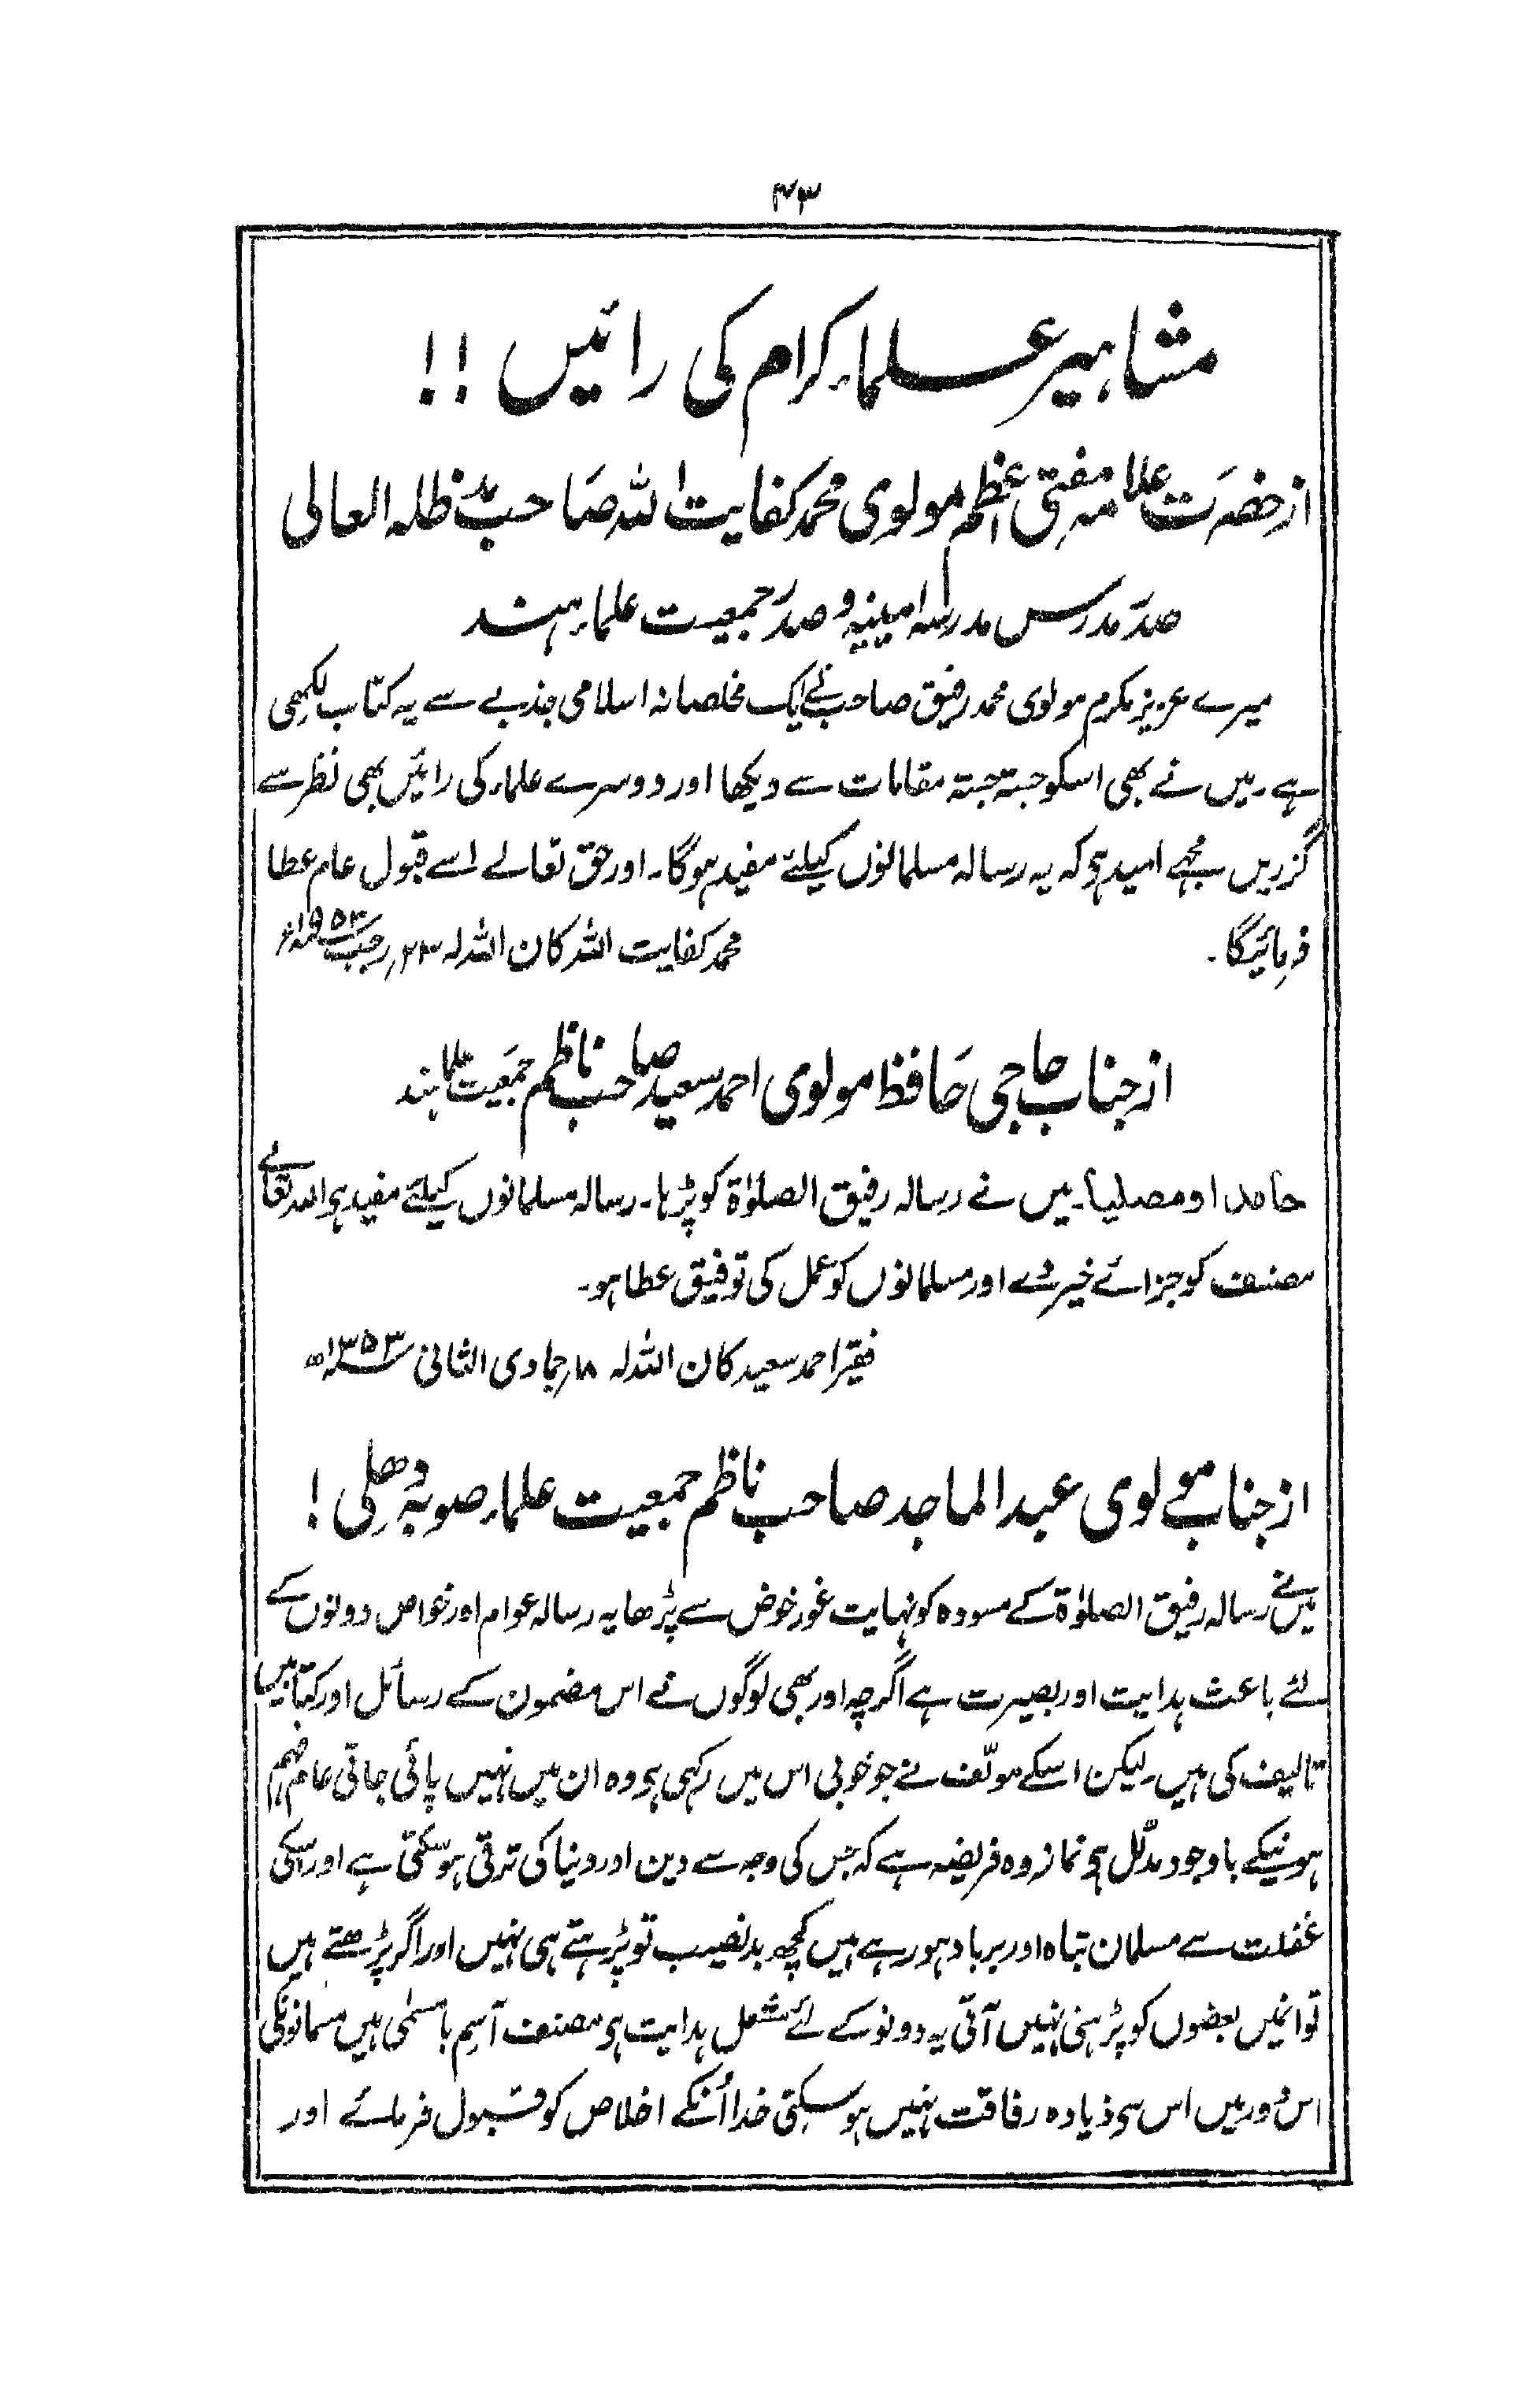 ۴۳
مشاہیر علماء کرام کی رائیں !!
از حضرت علامہ مفتی اعظم مولوی محمد کفایت اللہ صاحب مد ظلہ العالی
صدر مدرس مدرسہ امینیہ و صدر جمعیت علماء ہند
میرے عزیز مکرم مولوی محمد رفیق صاحب نے ایک مخلصانہ اسلامی جذبے سے یہ کتاب لکھی
ہے۔ میں نے بھی اسکو جستہ جستہ مقامات سے دیکھا اور دوسرے علماء کی رائیں بھی نظر سے
گزریں مجھے امید ہی کہ یہ رسالہ مسلمانوں کیلئے مفید ہوگا۔ اور حق تعالے اسے قبول عام عطا
فرمائیگا۔
محمد کفایت اللہ کان اللہ لہ ۲۳ رجب
از جناب حاجی حافظ مولوی احمد سعید صاحب ناظم جمعیت علماء ہند
حامدا و مصلیا۔ میں نے رسالہ رفیق الصلوٰۃ کو پڑہا۔ رسالہ مسلمانوں کیلئے مفید ہی اللہ تعالےٰ
مصنف کو جزائے خیر دے اور مسلمانوں کو عمل کی توفیق عطا ہو۔
فقیر احمد سعید کان اللہ لہ ۱۸ جمادی الثانی ۱۳۵۳ھ
از جناب مولوی عبد الماجد صاحب ناظم جمعیت علماء صوبہ دھلی !
میں نے رسالہ رفیق الصلوٰۃ کے مسودہ کو نہایت غور خوض سے پڑھا یہ رسالہ عوام اور خواص دونوں کے
لئے باعث ہدایت اور بصیرت ہے اگرچہ اور بھی لوگوں نے اس مضمون کے رسائل اور کتابیں
تالیف کی ہیں۔ لیکن اسکے مولّف نے جو خوبی اس میں رکہی ہی وہ ان میں نہیں پائی جاتی عام فہم
ہونیکے باوجود مدلّل ہی نماز وہ فریضہ ہے کہ جس کی وجہ سے دین اور دنیا کی ترقی ہوسکتی ہے اور اسکی
غفلت سے مسلمان تباہ اور برباد ہو رہے ہیں کچھ بدنصیب تو پڑہتے ہی نہیں اور اگر پڑھتے ہیں
تو انمیں بعضوں کو پڑہنی نہیں آتی یہ دونو کے لئے مشعل ہدایت ہی مصنف اسم با مسمٰی ہیں مسلمانونکی
اس دور میں اس سی ذیادہ رفاقت نہیں ہوسکتی خدا اُنکے اخلاص کو قبول فرمائے اور